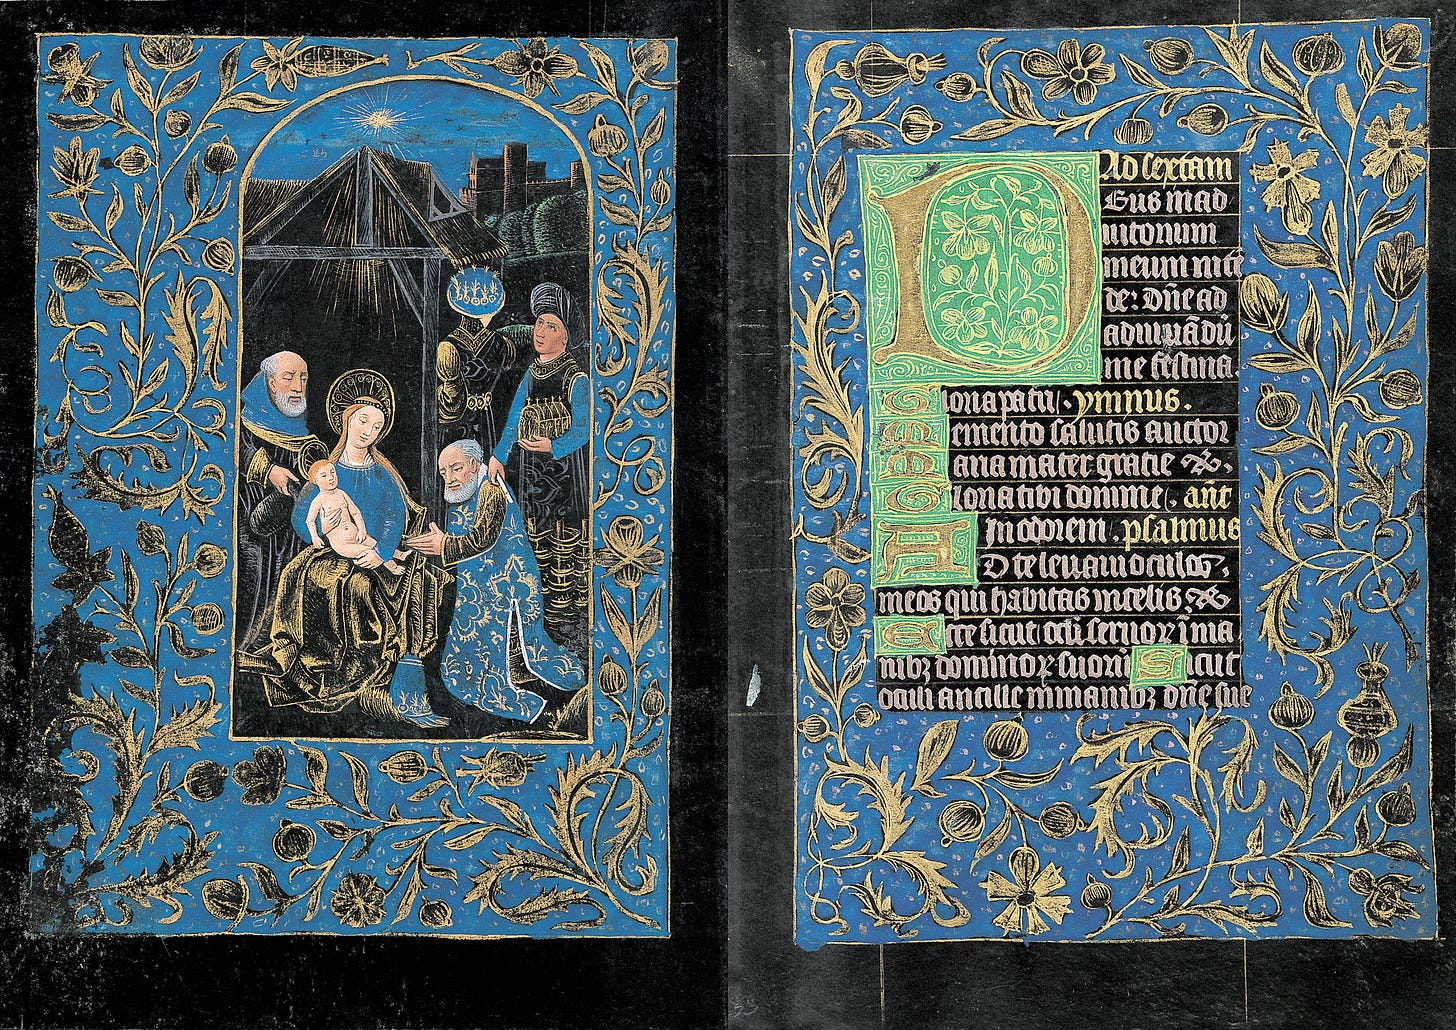 Ad sextam
Eus in ad
iutorium
meum inte
de: Dn̄e ad
adiuuādū
me festina.
Gloria patri. ymnus.
Memento salutis auctor
Maria mater gratie &.
Gloria tibi domine. ant̄
In odorem. psalmus
AD te leuaui oculos
meos qui habitas in celis. &
Ecce sicut oculi seruorꝝ ī ma
nibꝫ dominorꝝ suorū Sicut
oculi ancille in manibꝫ dn̄e sue